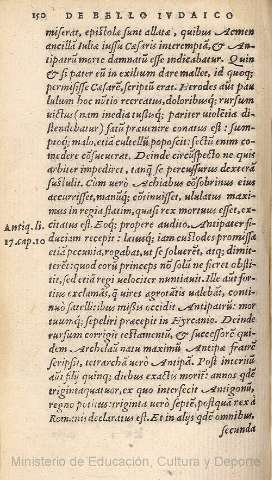 150 DE BELLO IVDAICO
miserat, epistolæ sunt allatæ, quibus Acmen
ancilla Iuliæ iussu Cæsaris interempta, & An-
tipatrũ morte damnatũ esse indicabatur. Quin
& si pater eũ in exilium dare mallet, id quoq;
permisisse Cæsarẽ, scriptũ erat. Herodes aũt pau
lulum hoc nũtio recreatus, doloribusq; rursum
victus (nam inedia tussiq; pariter violẽtia di-
stendebatur) fatũ præuenire conatus est: sum-
ptoq; malo, etiã cultellũ poposcit: sectũ enim co-
medere cõsueuerat. Deinde circũspecto ne quis
arbiter impediret, tanq̃ se percussurus dexterã
sustulit. Cum uerò Achiabus cõsobrinus eius
accurrisset, manuq; cõtinuisset, ululatus maxi-
mus in regia statim, quasi rex mortuus esset, ex-
Antiq. li. citatus est. Eoq; propere audito, Antipater fi-
17. cap. 10 duciam recepit: lætusq; iam custodes promissa
etiã pecunia, rogabat, ut se soluerẽt, atq; dimit-
terẽt: quod eorũ princeps nõ solũ ne fieret obsti-
tit, sed etiã regi uelociter nuntiauit. Ille aũt for-
tius exclamãs, q̃ uires ægrotãtis ualebãt, conti-
nuò satellitibus missis occidit Antipatrũ: mor
tuumq; sepeliri præcepit in Hyrcanio. Deinde
rursum corrigit testamentũ, & successorẽ qui-
dem Archelaũ natu maximũ Antipæ fratrẽ
scripsit, tetrarchã uerò Antipã. Post interitũ
aũt filij quinq; diebus exactis moritur: annos qdẽ
triginta quatuor, ex quo interfecit Antigonũ,
regno potitus: triginta uerò septẽ, postquã rex à
Romanis declaratus est. Et in alijs qdẽ omnibus,
secunda
Ministerio de Educación, Cultura y Deporte